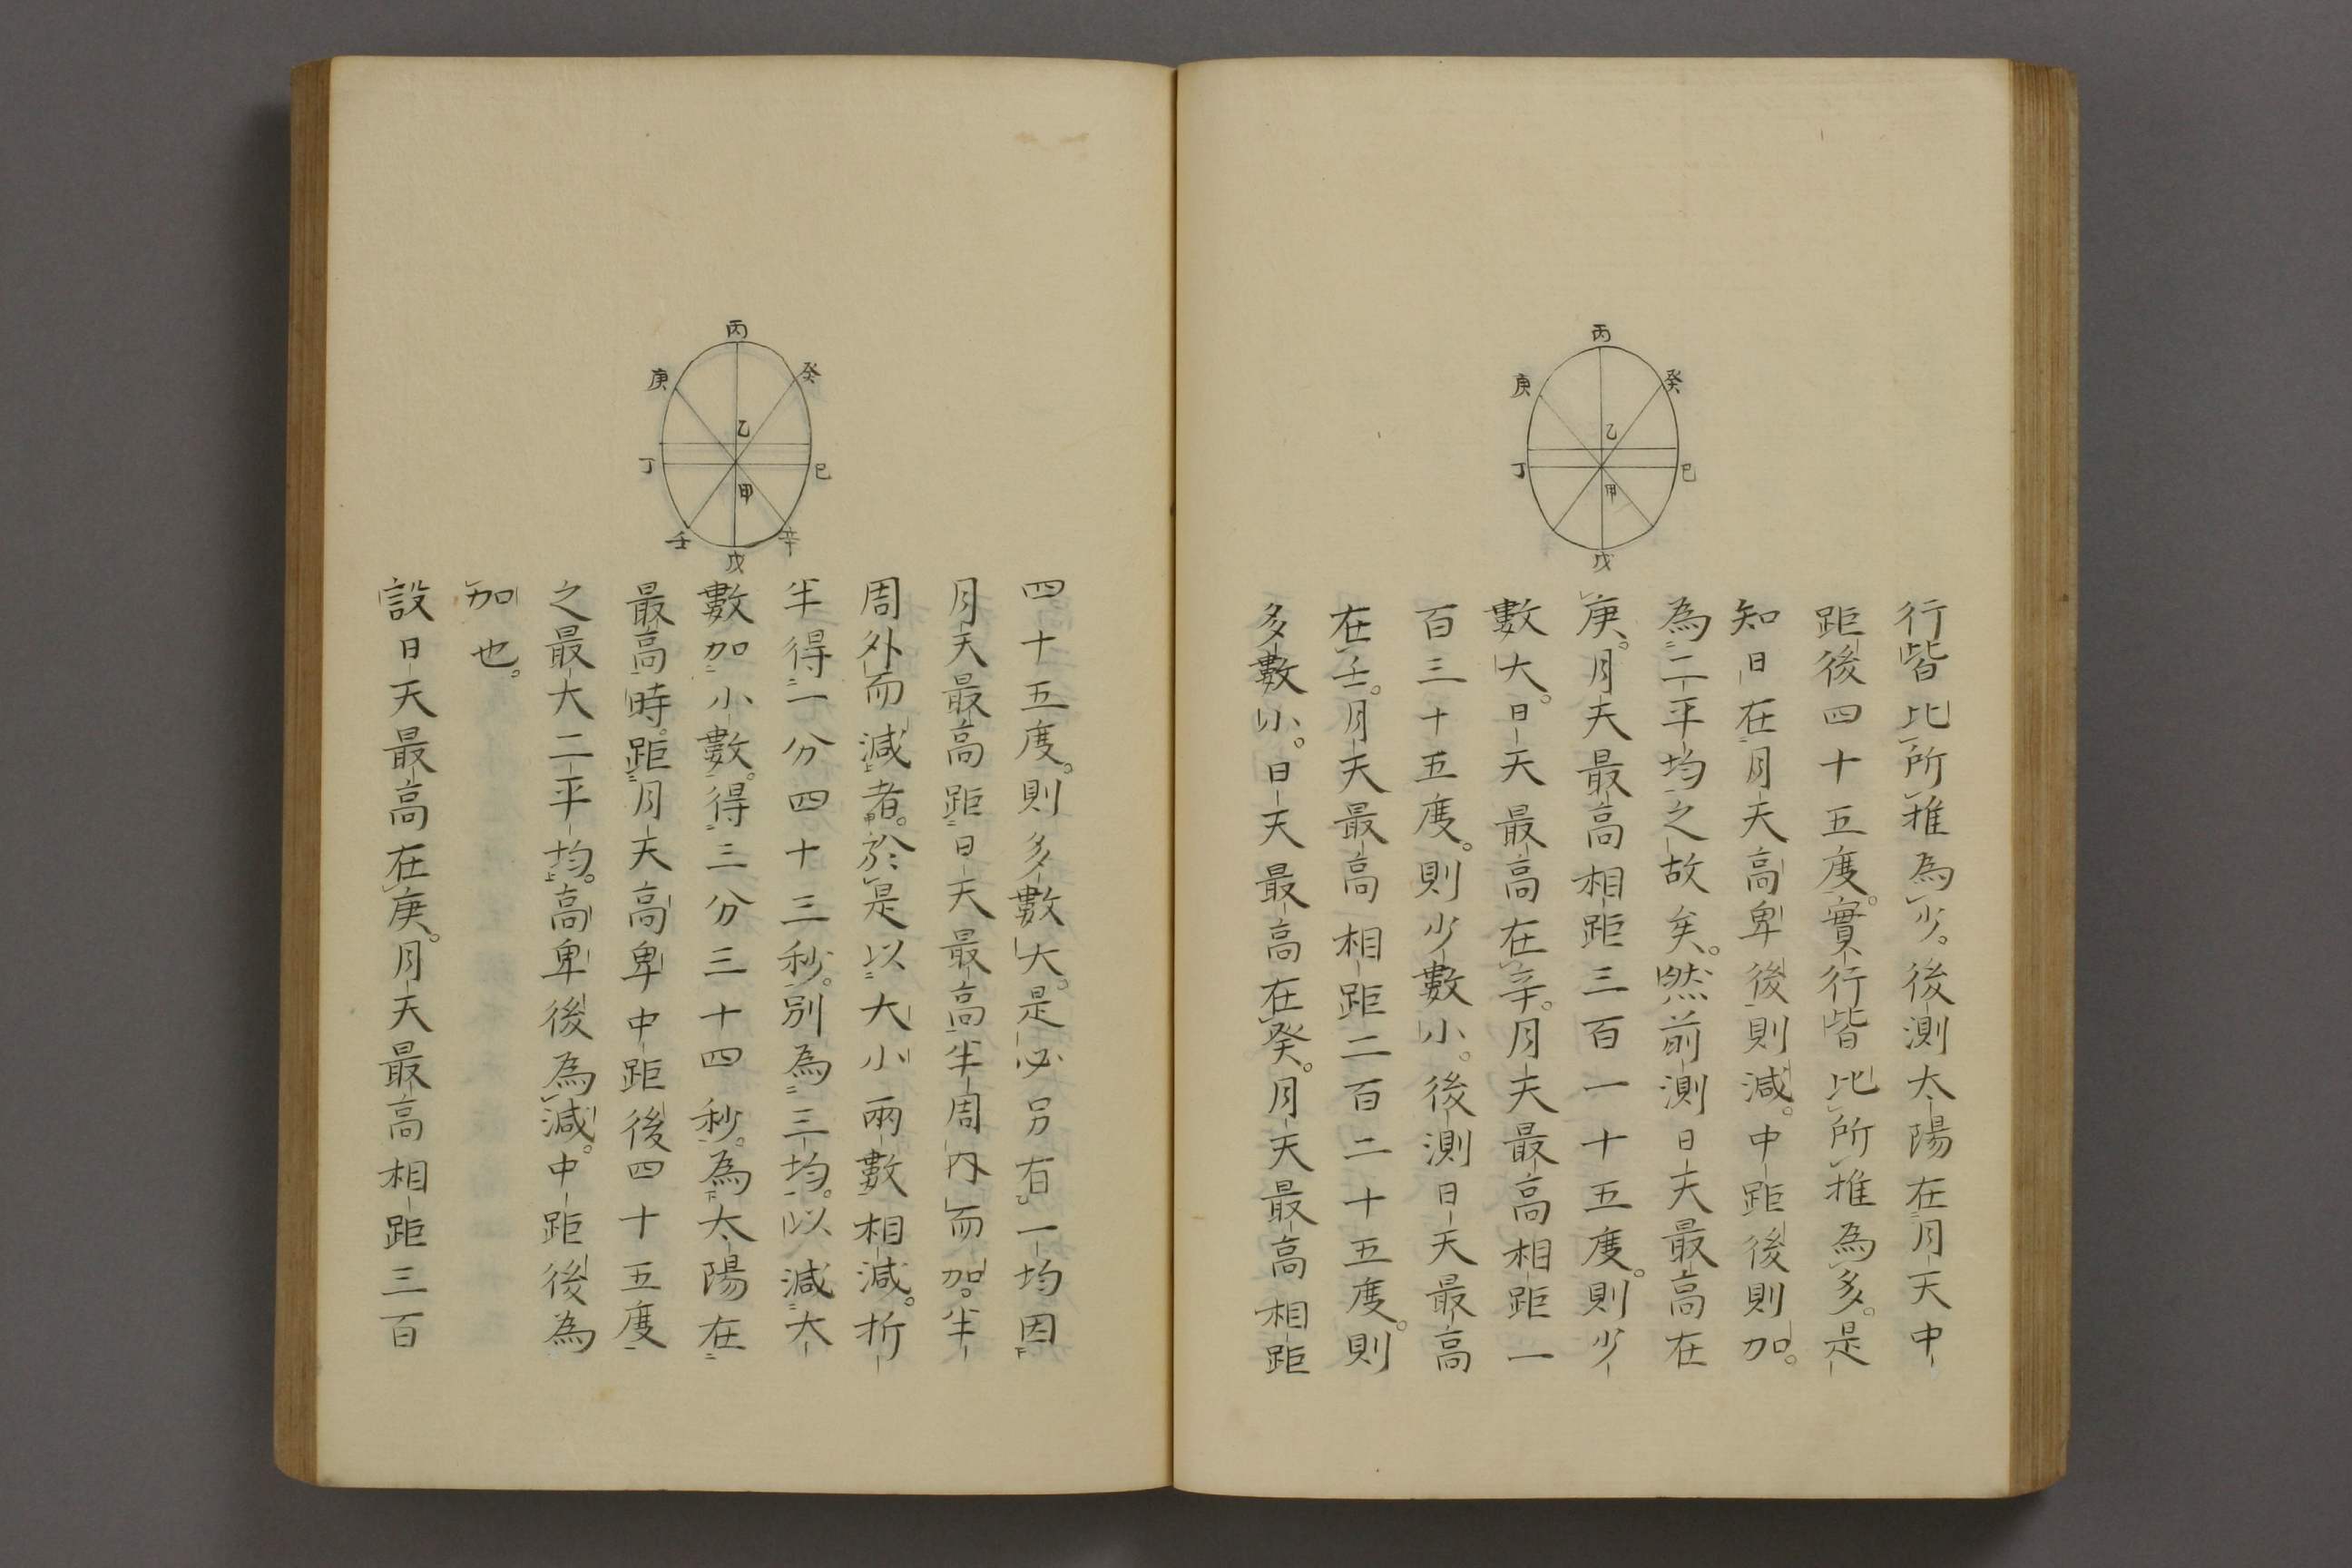 丙
癸
庚
乙
丁
巳
甲
戊
行皆比所推為少。後測太陽在月天中
距後四十五度。實行皆比所推為多。是
知日在月天高卑後則減。中距後則加。
為二平均之故矣。然前測日天最高在
庚。月天最高相距三百一十五度。則少
數大。日天最高在辛。月天最高相距一
百三十五度。則少數小。後測日天最高
在壬。月天最高相距二百二十五度。則
多數小。日天最高在癸。月天最高相距
丙
癸
庚
乙
丁
巳
甲
壬
辛
戊
四十五度。則多數大。是必另有一均因
月天最高距日天最高半周內而加。半
周外而減者。於是以大小兩數相減。折
半得一分四十三秒。別為三均。以減大
數加小數。得三分三十四秒。為太陽在
最高時。距月天高卑中距後四十五度
之最大二平均。高卑後為減。中距後為
加也。
設日天最高在庚。月天最高相距三百